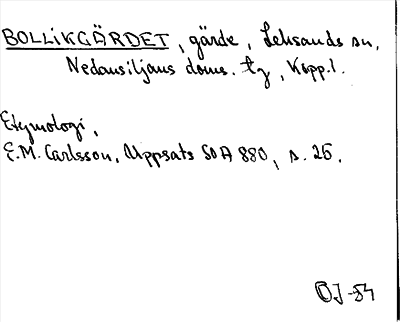 BOLLIKGÄRDET, gärde, Leksands sn,
Nedansiljans doms. tg, Kopp.l.
Etymologi,
E.M. Carlsson, Uppsats SOA 880, s. 26.
OJ-84